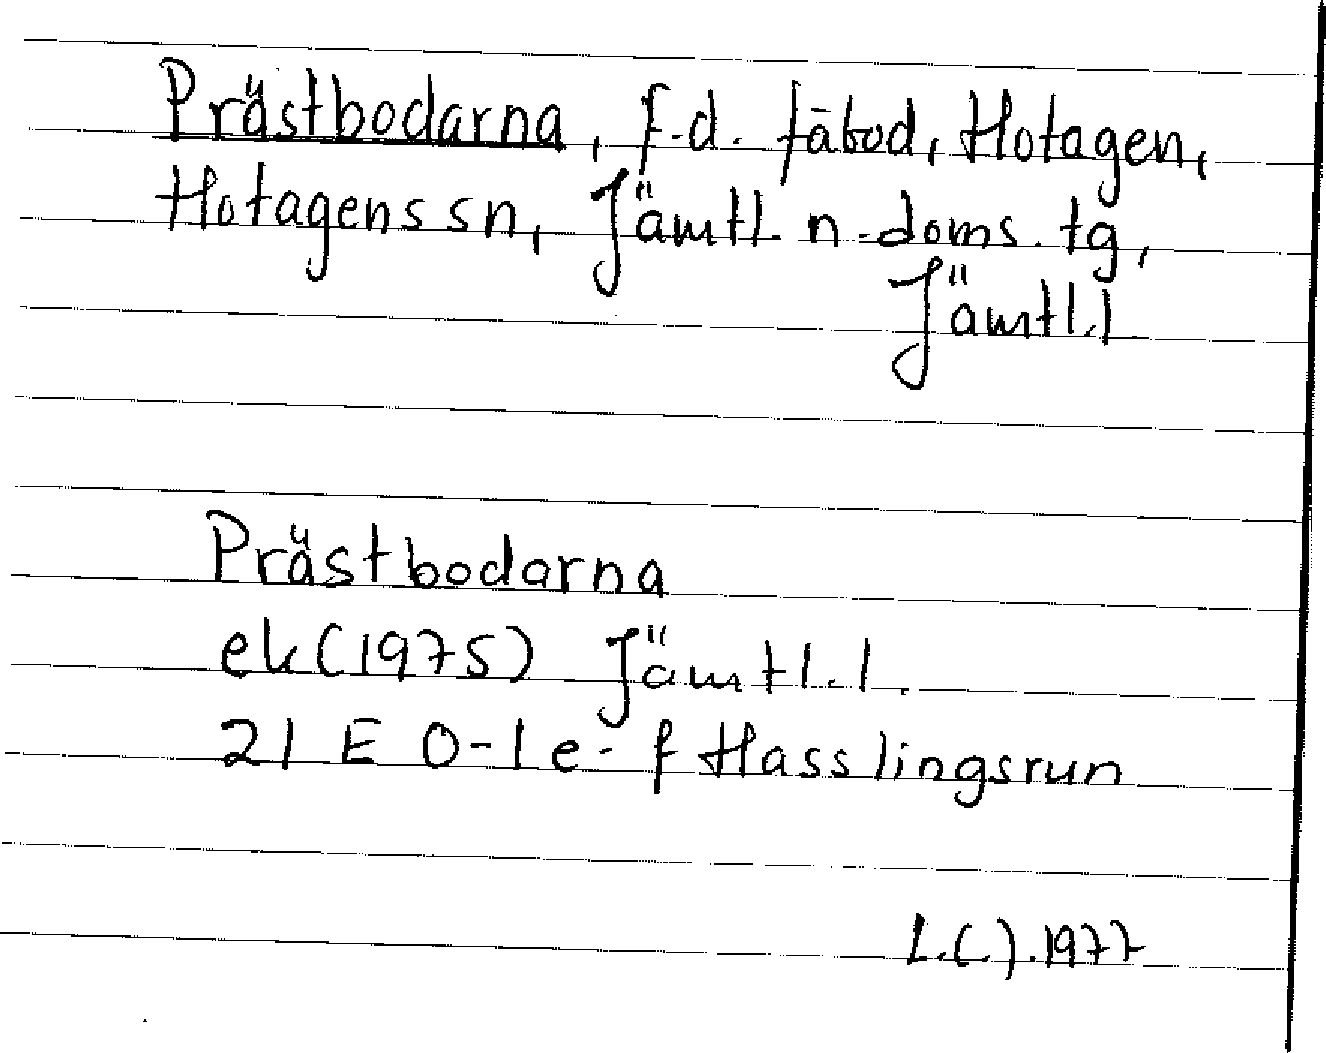 Prästbodarna, f.d. fäbod, Hotagen,
Hotagens sn, Jämtl. n. doms. tg,
Jämtl.l
Prästbodarna
ek (1975) Jämtl.l.
21 E 0-1 e-f Hasslingsrun
1977